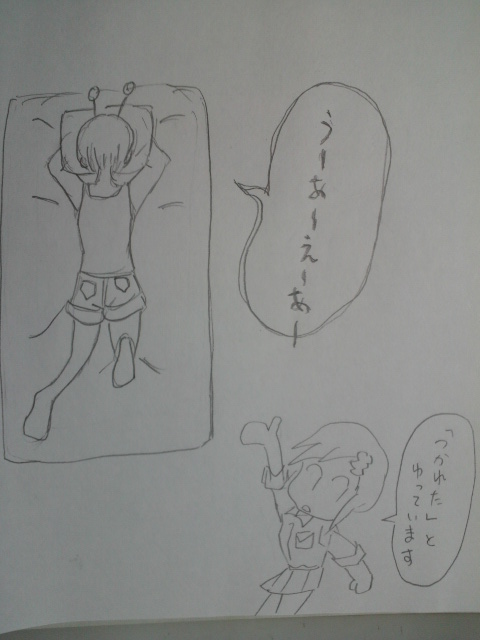 うーあーえーあー
「つかれた」と
ゆっています